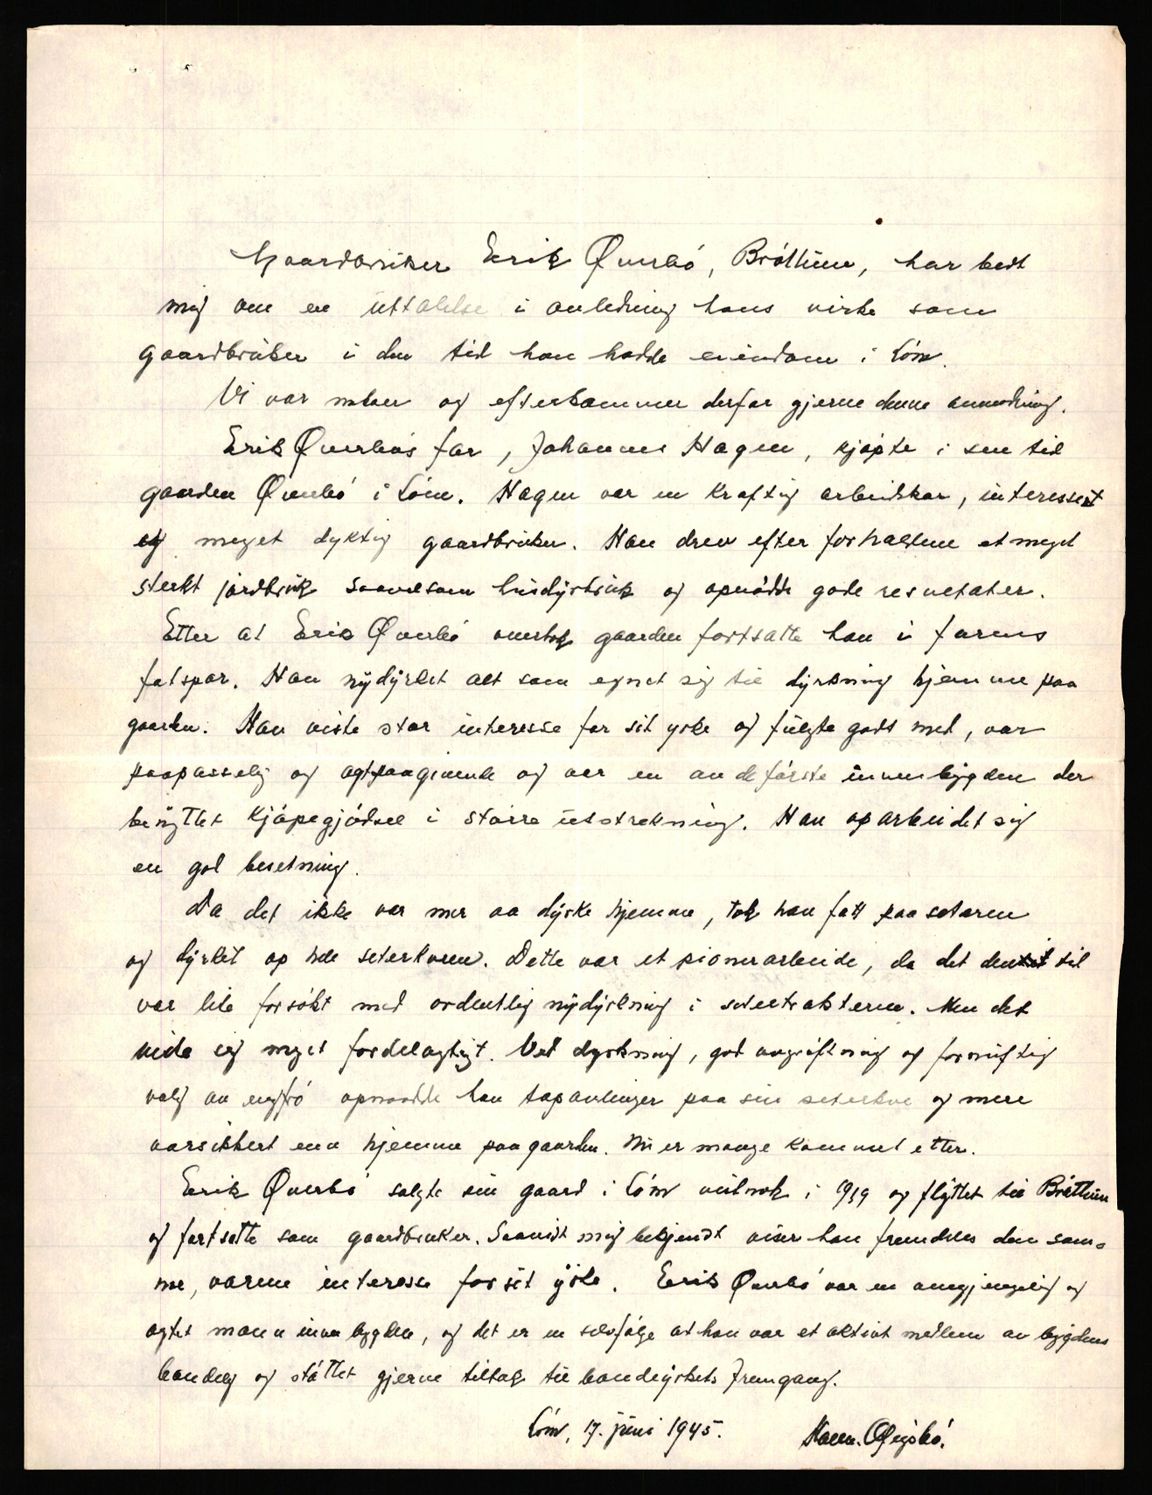 Gaardbruker Erik Øverbó, Bróttum, har bedt
mig om en uttalelse i anledning hans virke som
gaardbruker i den tid han hadde eiendom i Lóm.
Vi var naboer og efterkommer derfor gjerne denne anmodning.
Erik Øverbós far, Johannes Hagen, kjópte i sin tid
gaarden Øverbó i Lóm. Hagen var en kraftig arbeidskar, interessert
og meget dyktig gaardbruker. Han drev efter forholdene et meget
sterkt jordbruk saavelsom husdyrbruk og opnódde gode resultater.
Etter at Erik Øverbó overtok gaarden fortsatte han i farens
fotspor. Han nydyrket alt som egnet sig til dyrkning hjemme paa
gaarden. Han viste stor interesse for sit yrke og fulgte godt med, var
paapasselig og agtpaagivende og var en av de fórste innen bygden der
benyttet kjópegjódsel i stórre utstrekning. Han oparbeidet sig
en god besetning.
Da det ikke var mer aa dyrke hjemme, tok han fatt paa seteren
og dyrket op hele seterkven. Dette var et pionerarbeide, da det den tid
var lite forsókt med ordentlig nydyrkning i setertrakterne. Men det
viste sig meget fordelagtigt. Ved dyrkning, god avgróftning og fornuftig
valg av engfró opnaadde han topavlinger paa sin seterkve og mere
aarsikkert enn hjemme paa gaarden. Nu er mange kommet etter.
Erik Øverbó solgte sin gaard i Lóm vistnok i 1939 og flyttet til Bróttum
og fortsatte som gaardbruker. Saavidt mig bekjendt viser han fremdeles den sam-
me, varme interesse for sit yrke. Erik Øverbó var en omgjengelig og
agtet mann innen bygden, og det er en selvfólge at han var et aktivt medlem av bygdens
bondelag og stóttet gjerne tiltak til bondeyrkets fremgang.
Lóm, 17. juni 1945.